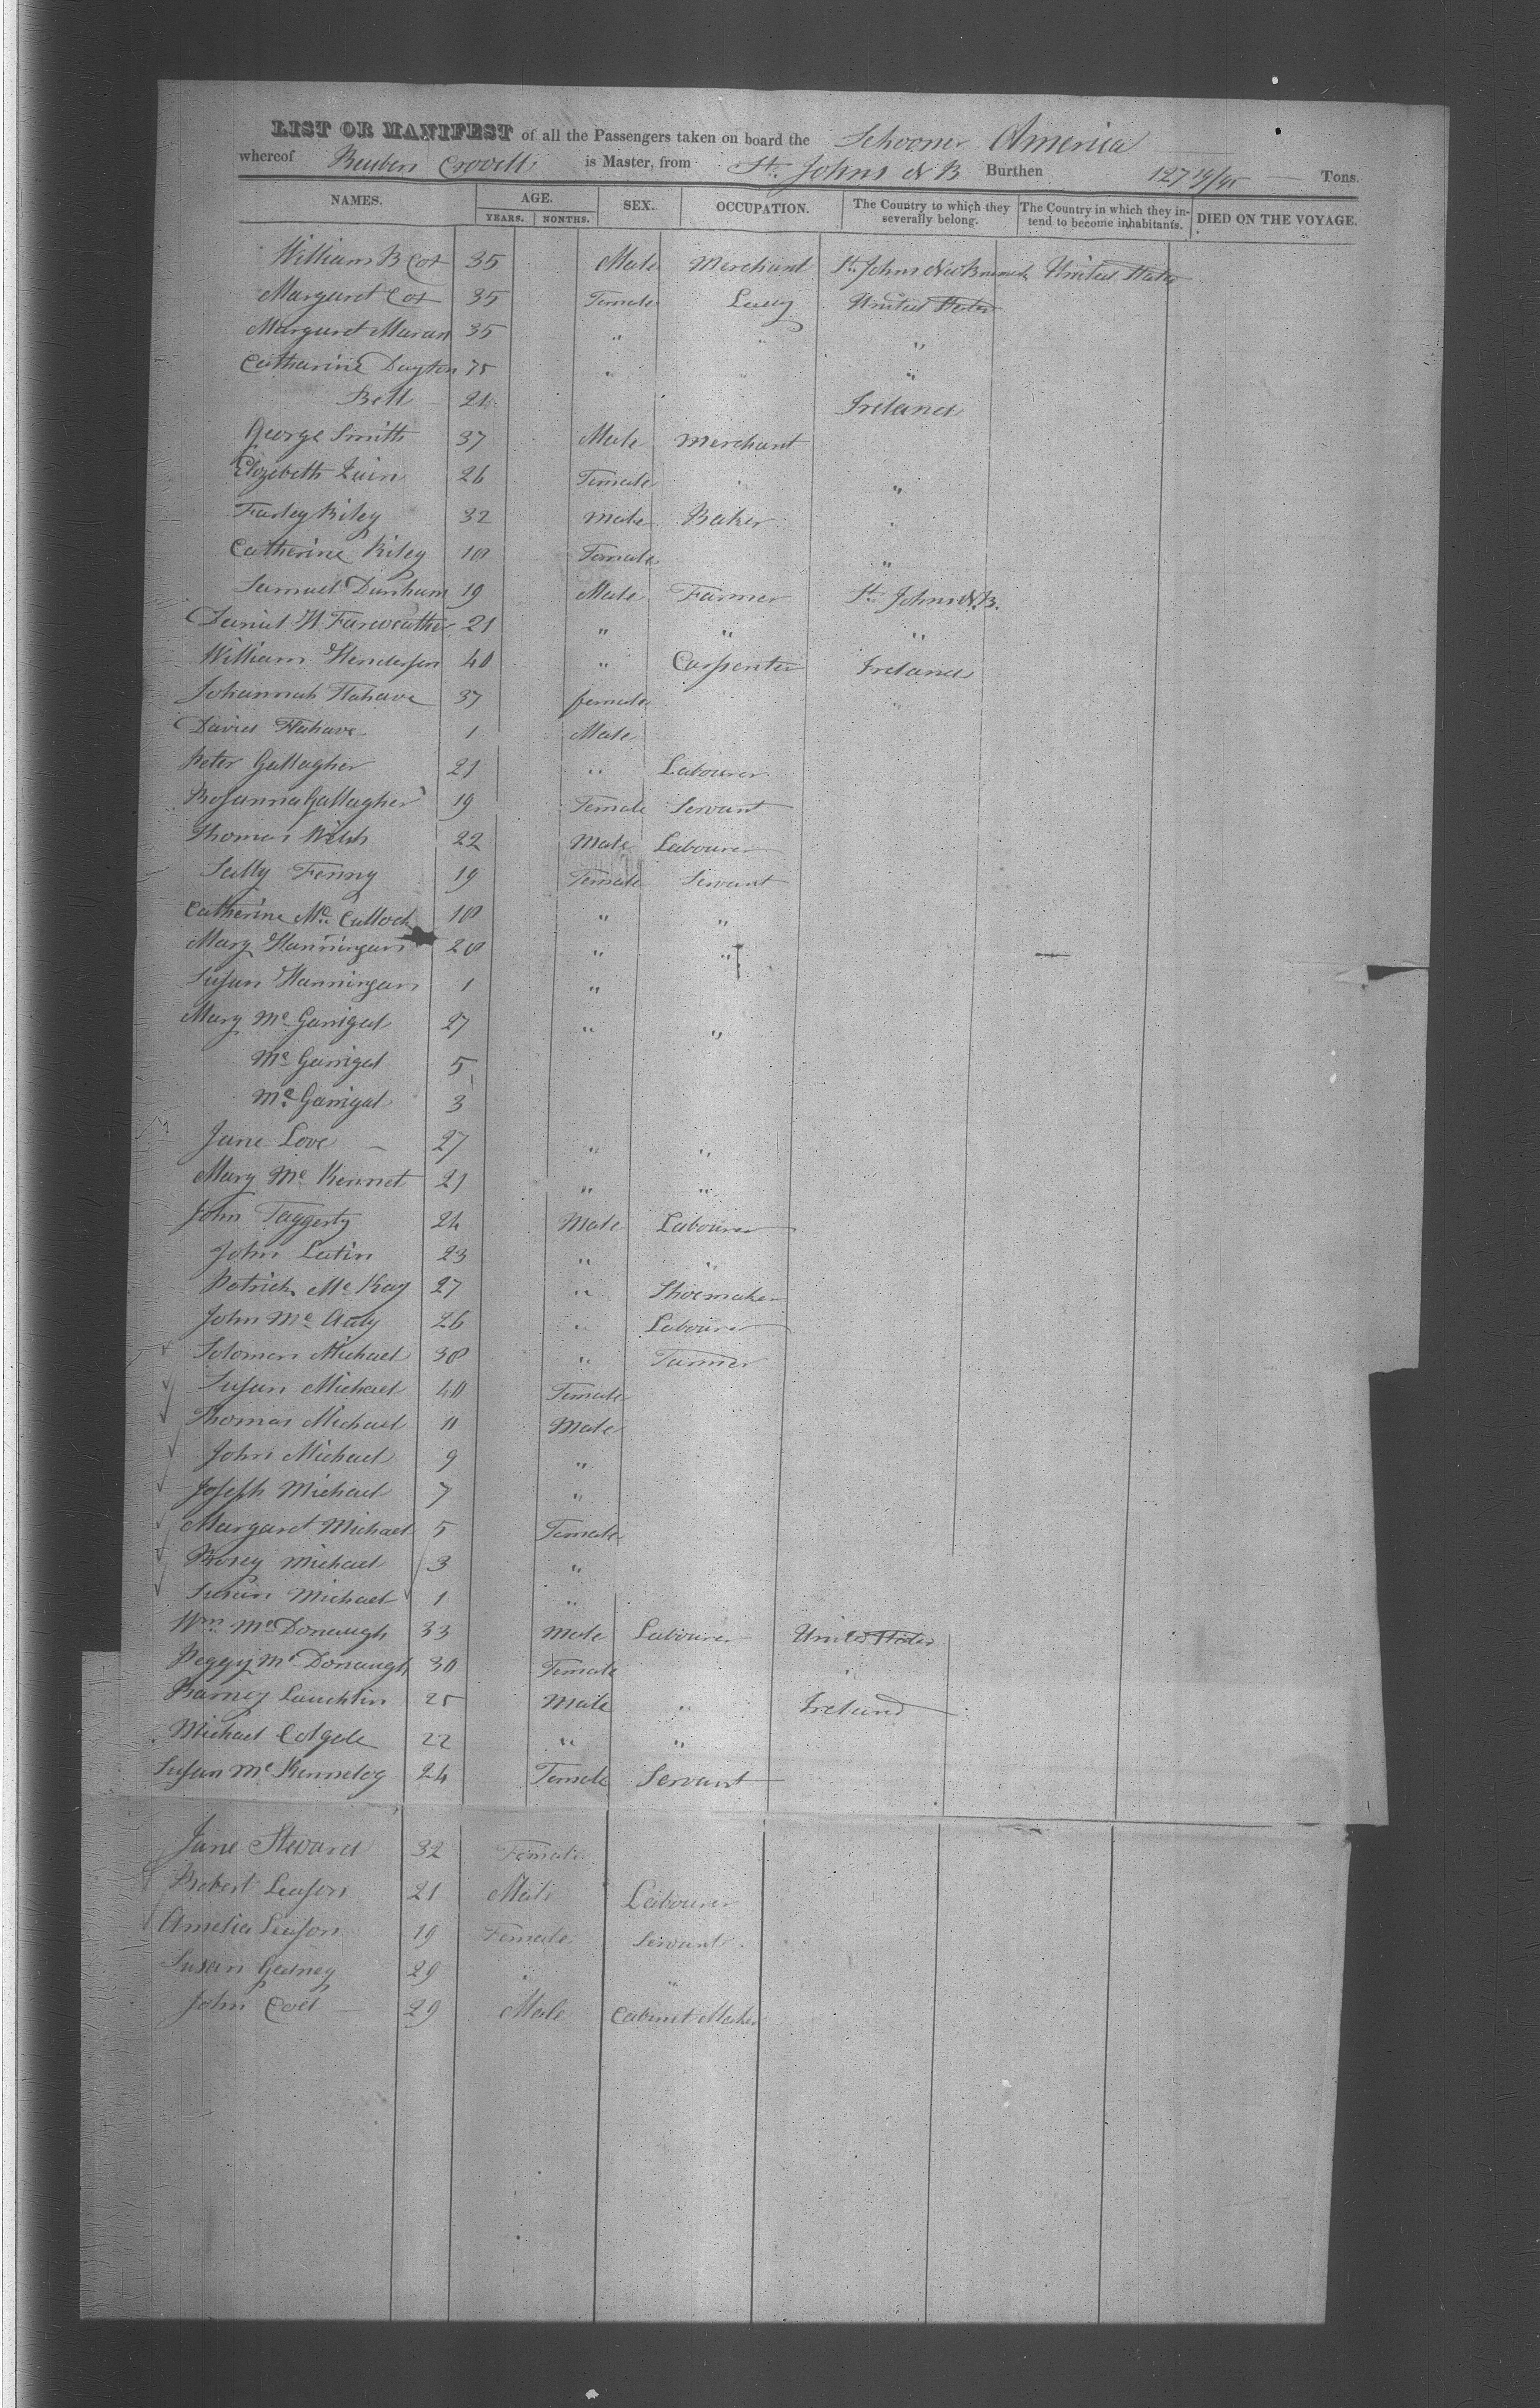 LIST OR MANIFEST of all the Passengers taken on board the Schooner America
whereof Reuben Crowell is Master, from St. Johns N B Burthen 127 19/95 Tons.
NAMES. AGE. SEX. OCCUPATION. The Country to which they severally belong. The Country in which they intend to become inhabitants. DIED ON THE VOYAGE.
YEARS. MONTHS.
William B Cox 35 Male Merchant St. Johns New Brunswick United States
Margaret Cox 35 Female Lady United States
Margaret Maran 35 " " "
Catharine Dayton 75 " " "
Bell 24 Ireland
George Smith 37 Male Merchant
Elizebeth 26 Female "
Farley Riley 32 Male Baker "
Catherine Riley 10 Female "
Samuel Dunham 19 Male Farmer St. Johns N.B.
Daniel H Farweather 21 " " "
William Henderson 40 " Carpenter Ireland
Johannah Flahave 37 female "
David Flahave 1 Male
Peter Gallagher 21 " Labourer
Rosanna Gallagher 19 Female Servant
Thomas Welsh 22 Male Labourer
Sally Fenny 19 Female Servant
Catherine Mc Culloch 18 " "
Mary Hanningan 20 " "
Susan Hanningan 1 "
Mary Mc Garrigal 27 " "
Mc Garrigal 5
Mc Garrigal 3
Jane Love 27 " "
Mary Mc Kennet 21 " "
John Taggerty 24 Male Labourer
John Latin 23 " "
Patrick Mc Kay 27 " Shoemaker
John Mc Auly 26 " Labourer
Solomon Michael 30 " Farmer
Susan Michael 40 Female
Thomas Michael 11 Male
John Michael 9 "
Joseph Michael 7 "
Margaret Michael 5 Female
Rosey Michael 3 "
Susan Michael 1 "
Wm. Mc Donaugh 33 Male Labourer United States
Peggy Mc Donaugh 30 Female "
Barney Lauchlin 25 Male " Ireland
Michael Colgele 22 " "
Susan Mc 24 Female Servant
Jane Steward 32 Female
Robert Leason 21 Male Labourer
Amelia Leason 19 Female Servant
Susan 29 " "
John 29 Male Cabinet Maker